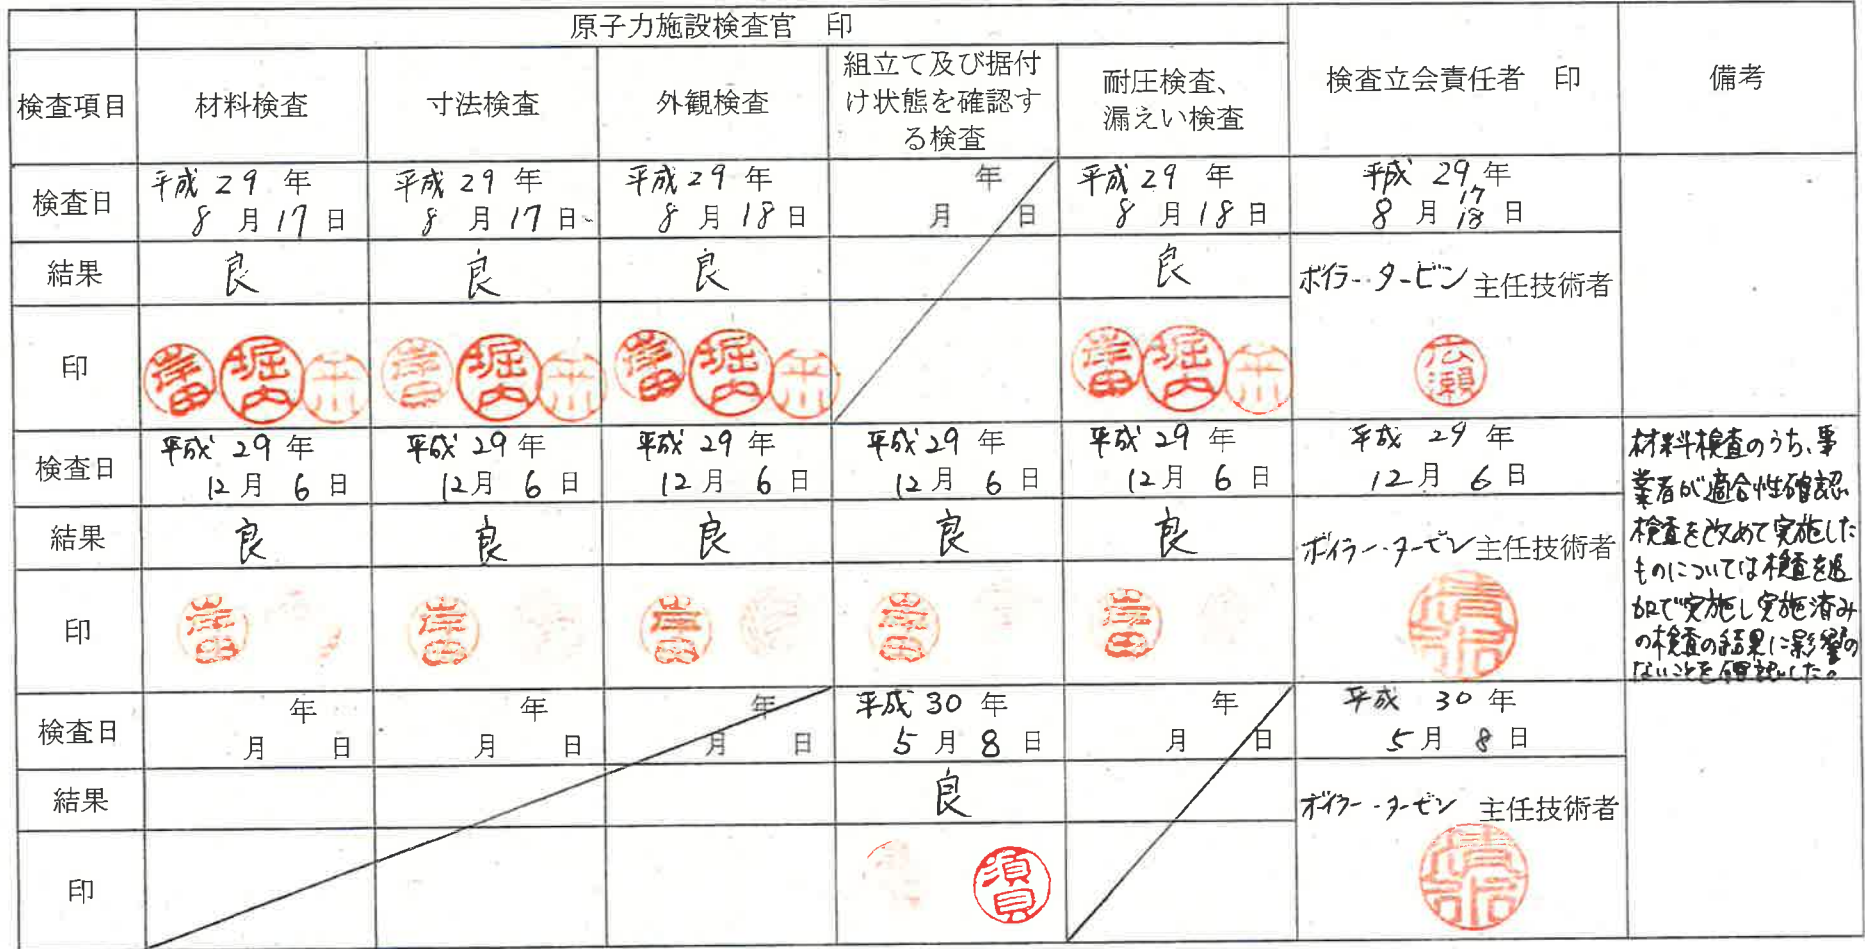 原子力施設検査官 印
検査項目 材料検査 寸法検査 外観検査 組立て及び据付け状態を確認する検査 耐圧検査、漏えい検査 検査立会責任者 印 備考
検査日 平成29年8月17日 平成29年8月17日 平成29年8月18日 年月日 平成29年8月18日 平成29年8月17 18日
結果 良 良 良 良 ボイラー・タービン主任技術者
印 岸田 堀内 平川 岸田 堀内 平川 岸田 堀内 平川 岸田 堀内 平川 広瀬
検査日 平成29年12月6日 平成29年12月6日 平成29年12月6日 平成29年12月6日 平成29年12月6日 平成29年12月6日
結果 良 良 良 良 良 ボイラー・タービン主任技術者
印 岸田 岸田 岸田 岸田 岸田
材料検査のうち、事
業者が適合性確認
検査を改めて実施した
ものについては検査を追
加で実施し実施済み
の検査の結果に影響の
ないことを確認した。
検査日 年月日 年月日 年月日 平成30年5月8日 年月日 平成30年5月8日
結果 良 ボイラー・タービン主任技術者
印 須貝